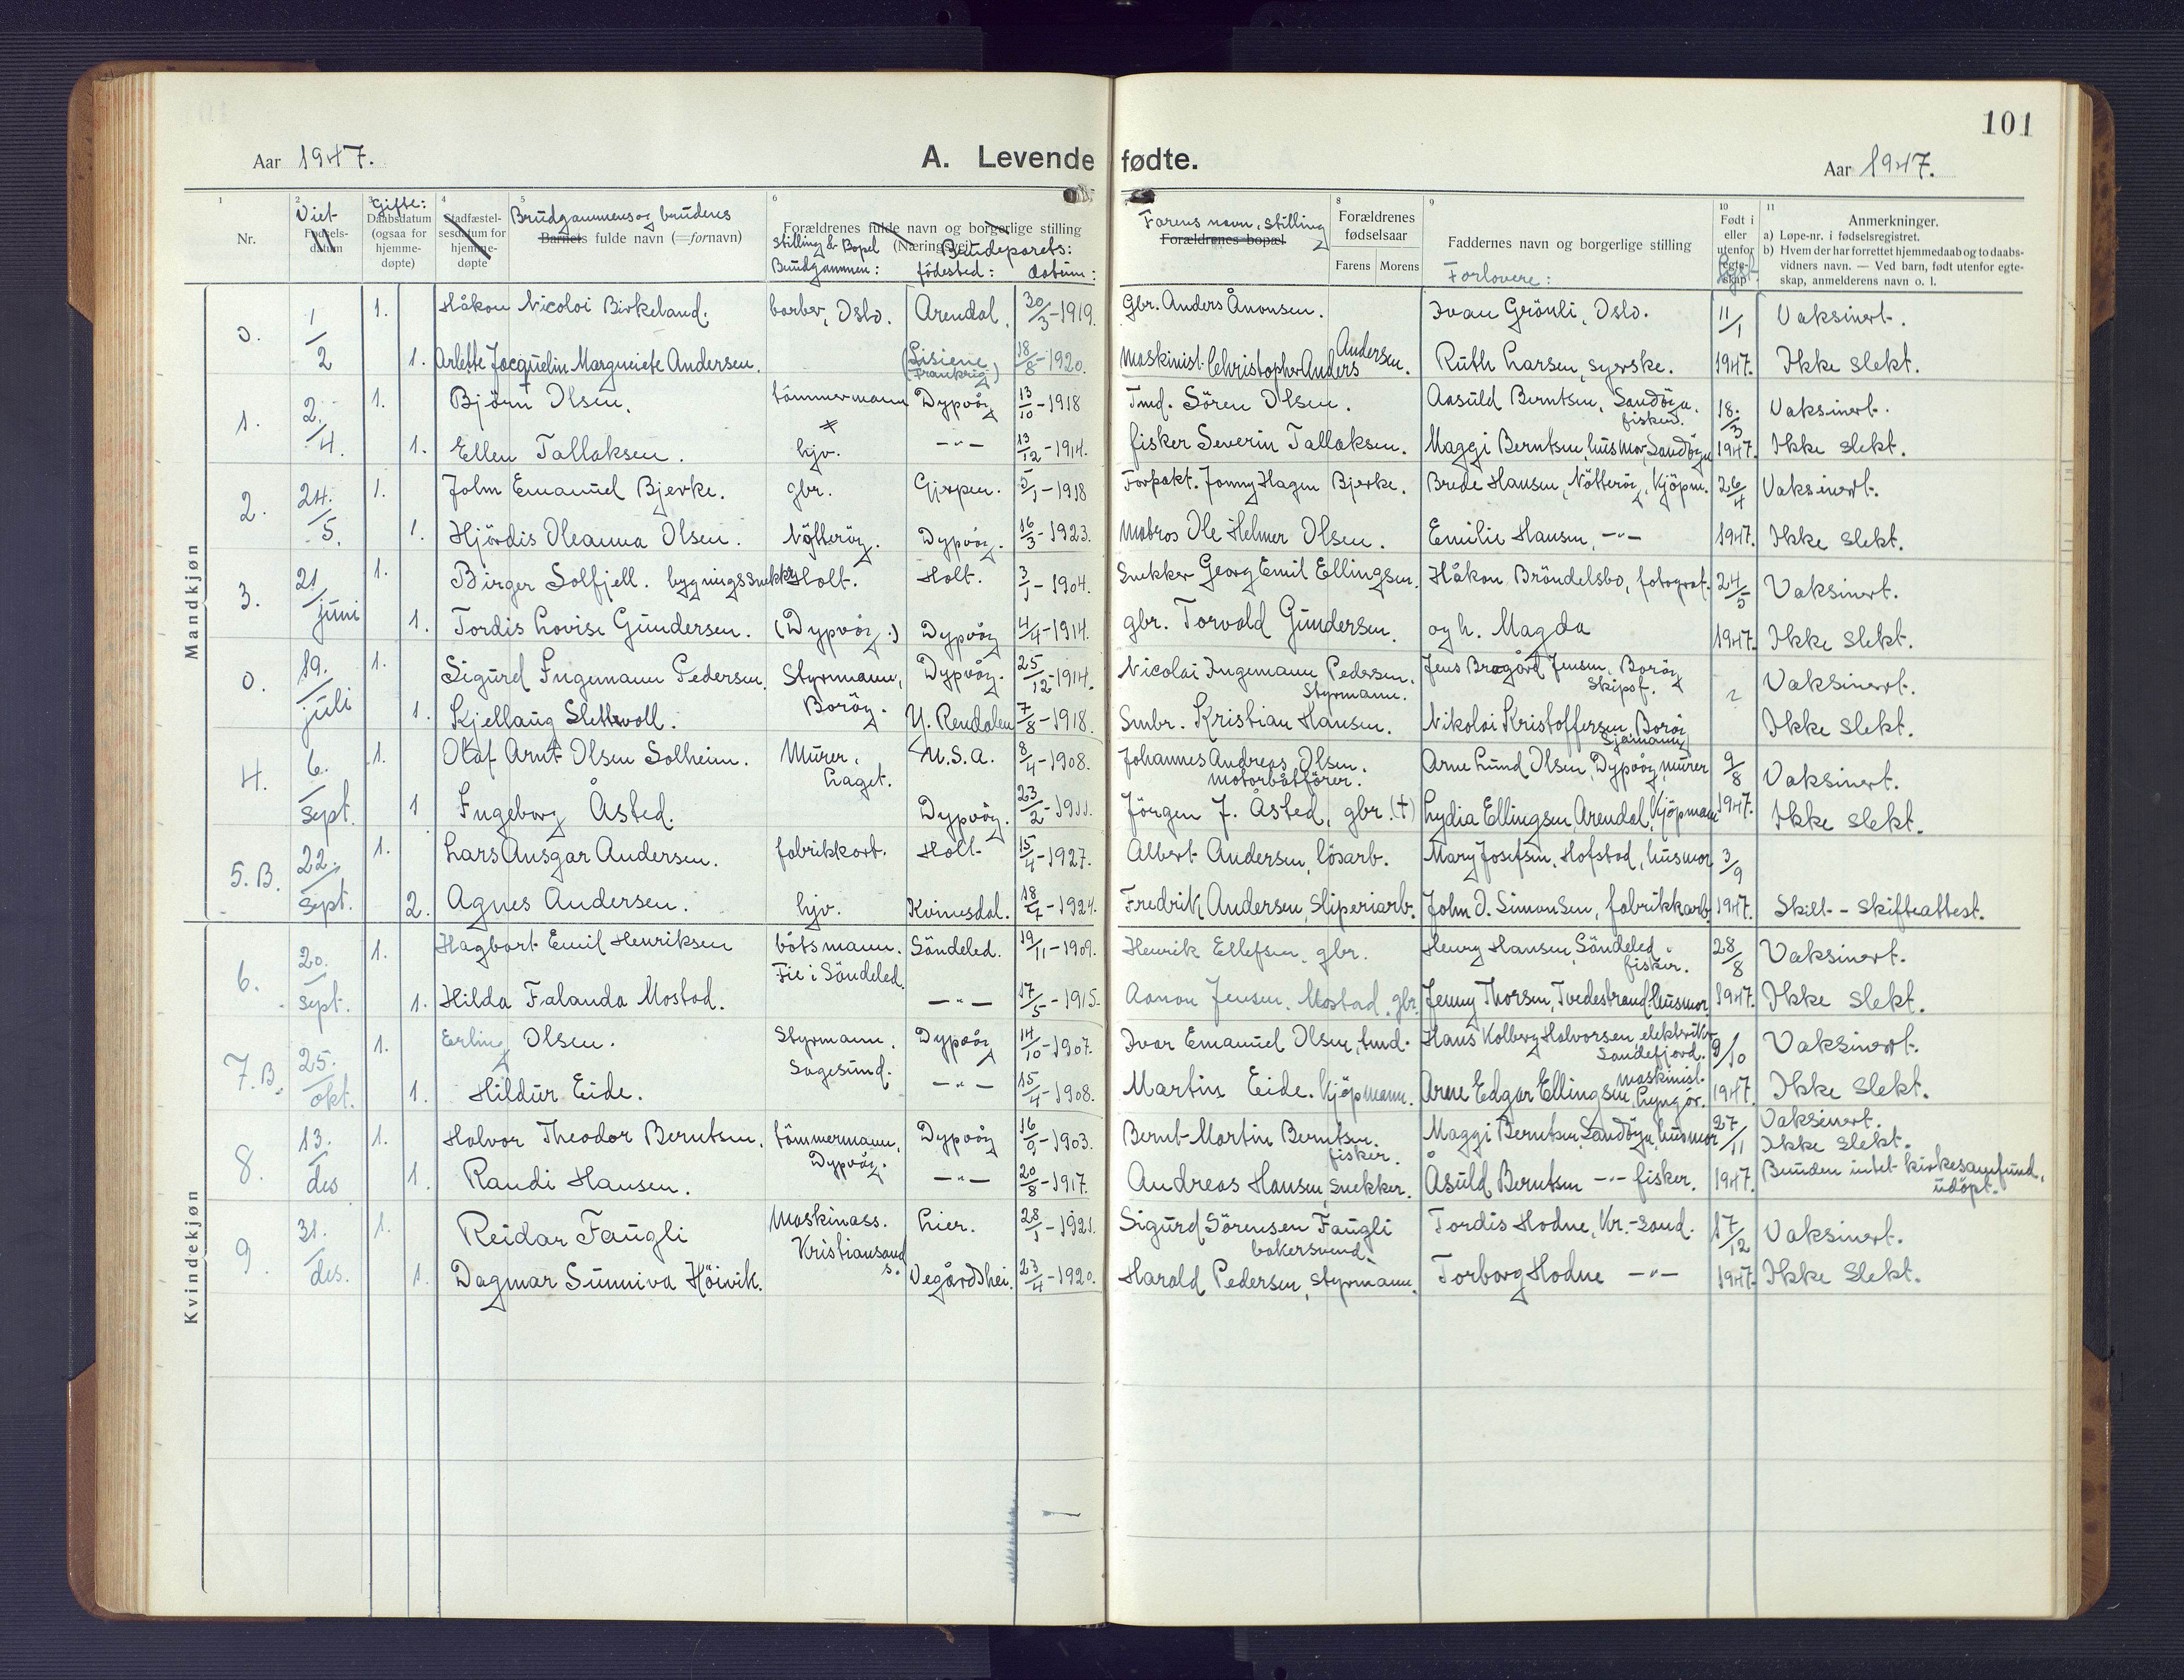 101
Aar 1947. A. Levende fødte. Aar 1947.
1 Nr.
2 Viet Fødsels-datum
3 Gifte: Daabsdatum (ogsaa for hjemme-døpte)
4 Stadfæstel-sesdatum for hjemme-døpte
5 Brudgommens og brudens Barnets fulde navn (=fornavn)
6 Forældrenes fulde navn og borgerlige stilling (Næringsvei) Stilling & Bopel Brudgommen: Brudeparets: födested: datum:
Farens navn, stilling Forældrenes bopæl
8 Forældrenes fødselsaar Farens Morens
9 Faddernes navn og borgerlige stilling Forlovere:
10 Født i eller utenfor egte-skap
11 Anmerkninger.
a) Løpe-nr. i fødselsregistret.
b) Hvem der har forrettet hjemmedaab og to daabs-vidners navn. — Ved barn, født utenfor egte-skap, anmelderens navn o. l.
Mandkjøn
0. 1/2 1. Håkon Nicolai Birkeland. barber, Oslo. Arendal. 30/3-1919. Gbr. Anders Ånonsen. Ivan Grönli, Oslo. 11/1 Vaksinert.
1. Arlette Jacquelin Margueiete Andersen. (Lisiene Frankrig) 18/8-1920. Maskinist. Christopher Anders Andersen. Ruth Larsen, syerske. 1947. Ikke slekt.
1. 2./4. 1. Björn Olsen. tömmermann Dypvåg 13/10-1918 Tmd. Sören Olsen. Aasuld Berntsen, Sandöya. fisker. 18./3 Vaksinert.
1. Ellen Tallaksen. hjv. -"- 13/12-1914. fisker Severin Tallaksen. Maggi Berntsen, husmor, Sandöya 1947. Ikke slekt.
2. 24./5. 1. John Emanuel Bjerke. gbr. Gjerpen. 5/1-1918 Forpakt. Jonny Hagen Bjerke. Brede Hansen, Nötteröy, Kjöpm. 26/4 Vaksinert.
1. Hjördis Oleanna Olsen. Nötteröy. Dypvåg. 16/3-1923. Matros Ole Helmer Olsen. Emilie Hansen, -"- 1947. Ikke slekt.
3. 21/juni 1. Birger Solfjell. bygningssnekker Holt. Holt. 3/1-1904. Snekker Georg Emil Ellingsen. Håkon Bröndelsbo, fotograf. 24/5 Vaksinert.
1. Tordis Lovise Gundersen. (Dypvåg.) Dypvåg 4/4-1914. gbr. Torvald Gundersen. og h. Magda 1947. Ikke slekt.
0. 19./juli 1. Sigurd Ingemann Pedersen. Styrmann, Dypvåg. 25/12-1914. Nicolai Ingemann Pedersen. Styrmann. Jens Bragård Jensen, Boröy Skipsf. ? Vaksinert.
1. Kjellaug Slettvoll. Boröy. Y. Rendalen 7/8-1918. Smbr. Kristian Hansen. Nikolai Kristoffersen, Boröy Sjömann Ikke slekt.
4. 6./sept. 1. Olaf Arnt Olsen Solheim. Murer. U.S.A. 8/4-1908. Johannes Andreas Olsen. motorbåtförer. Arne Lund Olsen, Dypvåg, murer 9/8 Vaksinert.
1 Ingeborg Åsted. Laget. Dypvåg. 23/2-1911. Jörgen J. Åsted, gbr. (†) Lydia Ellingsen, Arendal, Kjöpmann 1947. Ikke slekt.
5. B. 22./sept. 1. Lars Ansgar Andersen. fabrikkarb. Holt 15/4-1927. Albert Andersen, lösarb. Mary Josefsen, Hofstad, husmor 3/9
2. Agnes Andersen. hjv. Kvinesdal. 18/7-1924. Fredrik Andersen, Sliperiarb. John O. Simonsen, fabrikkarb 1947. Skilt - Skifteattest.
Kvindekjøn
6. 20./sept. 1. Hagbart Emil Henriksen båtsmann. Söndeled. 19/11-1909. Henrik Ellefsen, gbr. Henry Hansen, Söndeled. fisker. 28/8 Vaksinert.
1. Hilda Falanda Mostad. Fie i Söndeled. -"- 17/5-1915. Aanon Jensen Mostad. gbr. Jenny Thorsen, Tvedestrand, husmor 1947. Ikke slekt.
7. B. 25./okt. 1. Erling Olsen. Styrmann. Dypvåg 14/10-1907. Ivar Emanuel Olsen, tmd. Hans Kolberg Halvorsen, elektriker Sandefjord. 9/10 Vaksinert.
1. Hildur Eide. Sagesund. -"- 15/4-1908. Martin Eide. Kjöpmann. Arne Edgar Ellingsen, maskinist. Lyngör. 1947. Ikke slekt.
8. 13./des 1. Halvor Theodor Berntsen. tömmermann, Dypvåg 16/9-1903. Bernt Martin Berntsen. fisker. Maggi Berntsen, Sandöya, husmor 27/11 Vaksinert. Ikke slekt.
1. Randi Hansen. Dypvåg. -"- 20/8-1917. Andreas Hansen, snekker. Åsuld Berntsen -"- fisker. 1947. Bruden intet kirkesamfund, udöpt.
9. 31./des. 1. Reidar Faugli Maskinass. Lier. 28/1-1921. Sigurd Sörensen Faugli bakersvend. Tordis Hodne, Kr.-sand. 17/12 Vaksinert.
1. Dagmar Sunniva Höivik. Kristiansand s. Vegårdshei. 23/4-1920. Harald Pedersen, Styrmann. Torborg Hodne -"- 1947. Ikke slekt.